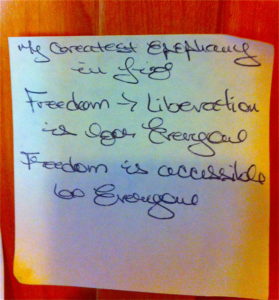 My Greatest Epiphany
in life
Freedom → Liberation
is for Everyone
Freedom is accessible
to Everyone